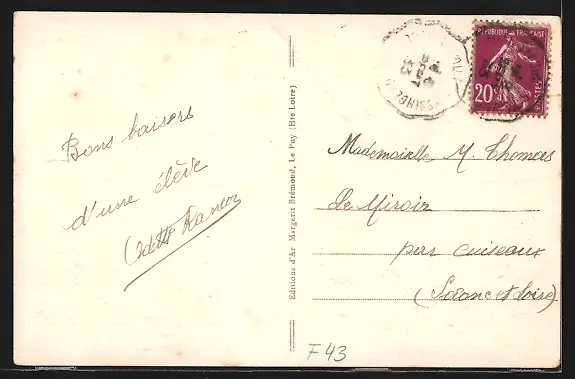 Bons baisers
d'une élève
Odette
Editions d'Ar Margerit Brémond, Le Puy (Hte Loire)
REPUBLIQUE FRANÇAISE
20c
POSTES
Mademoiselle M. Thomas
Le Miroir
par Cuiseaux
(Saone et Loire)
F43